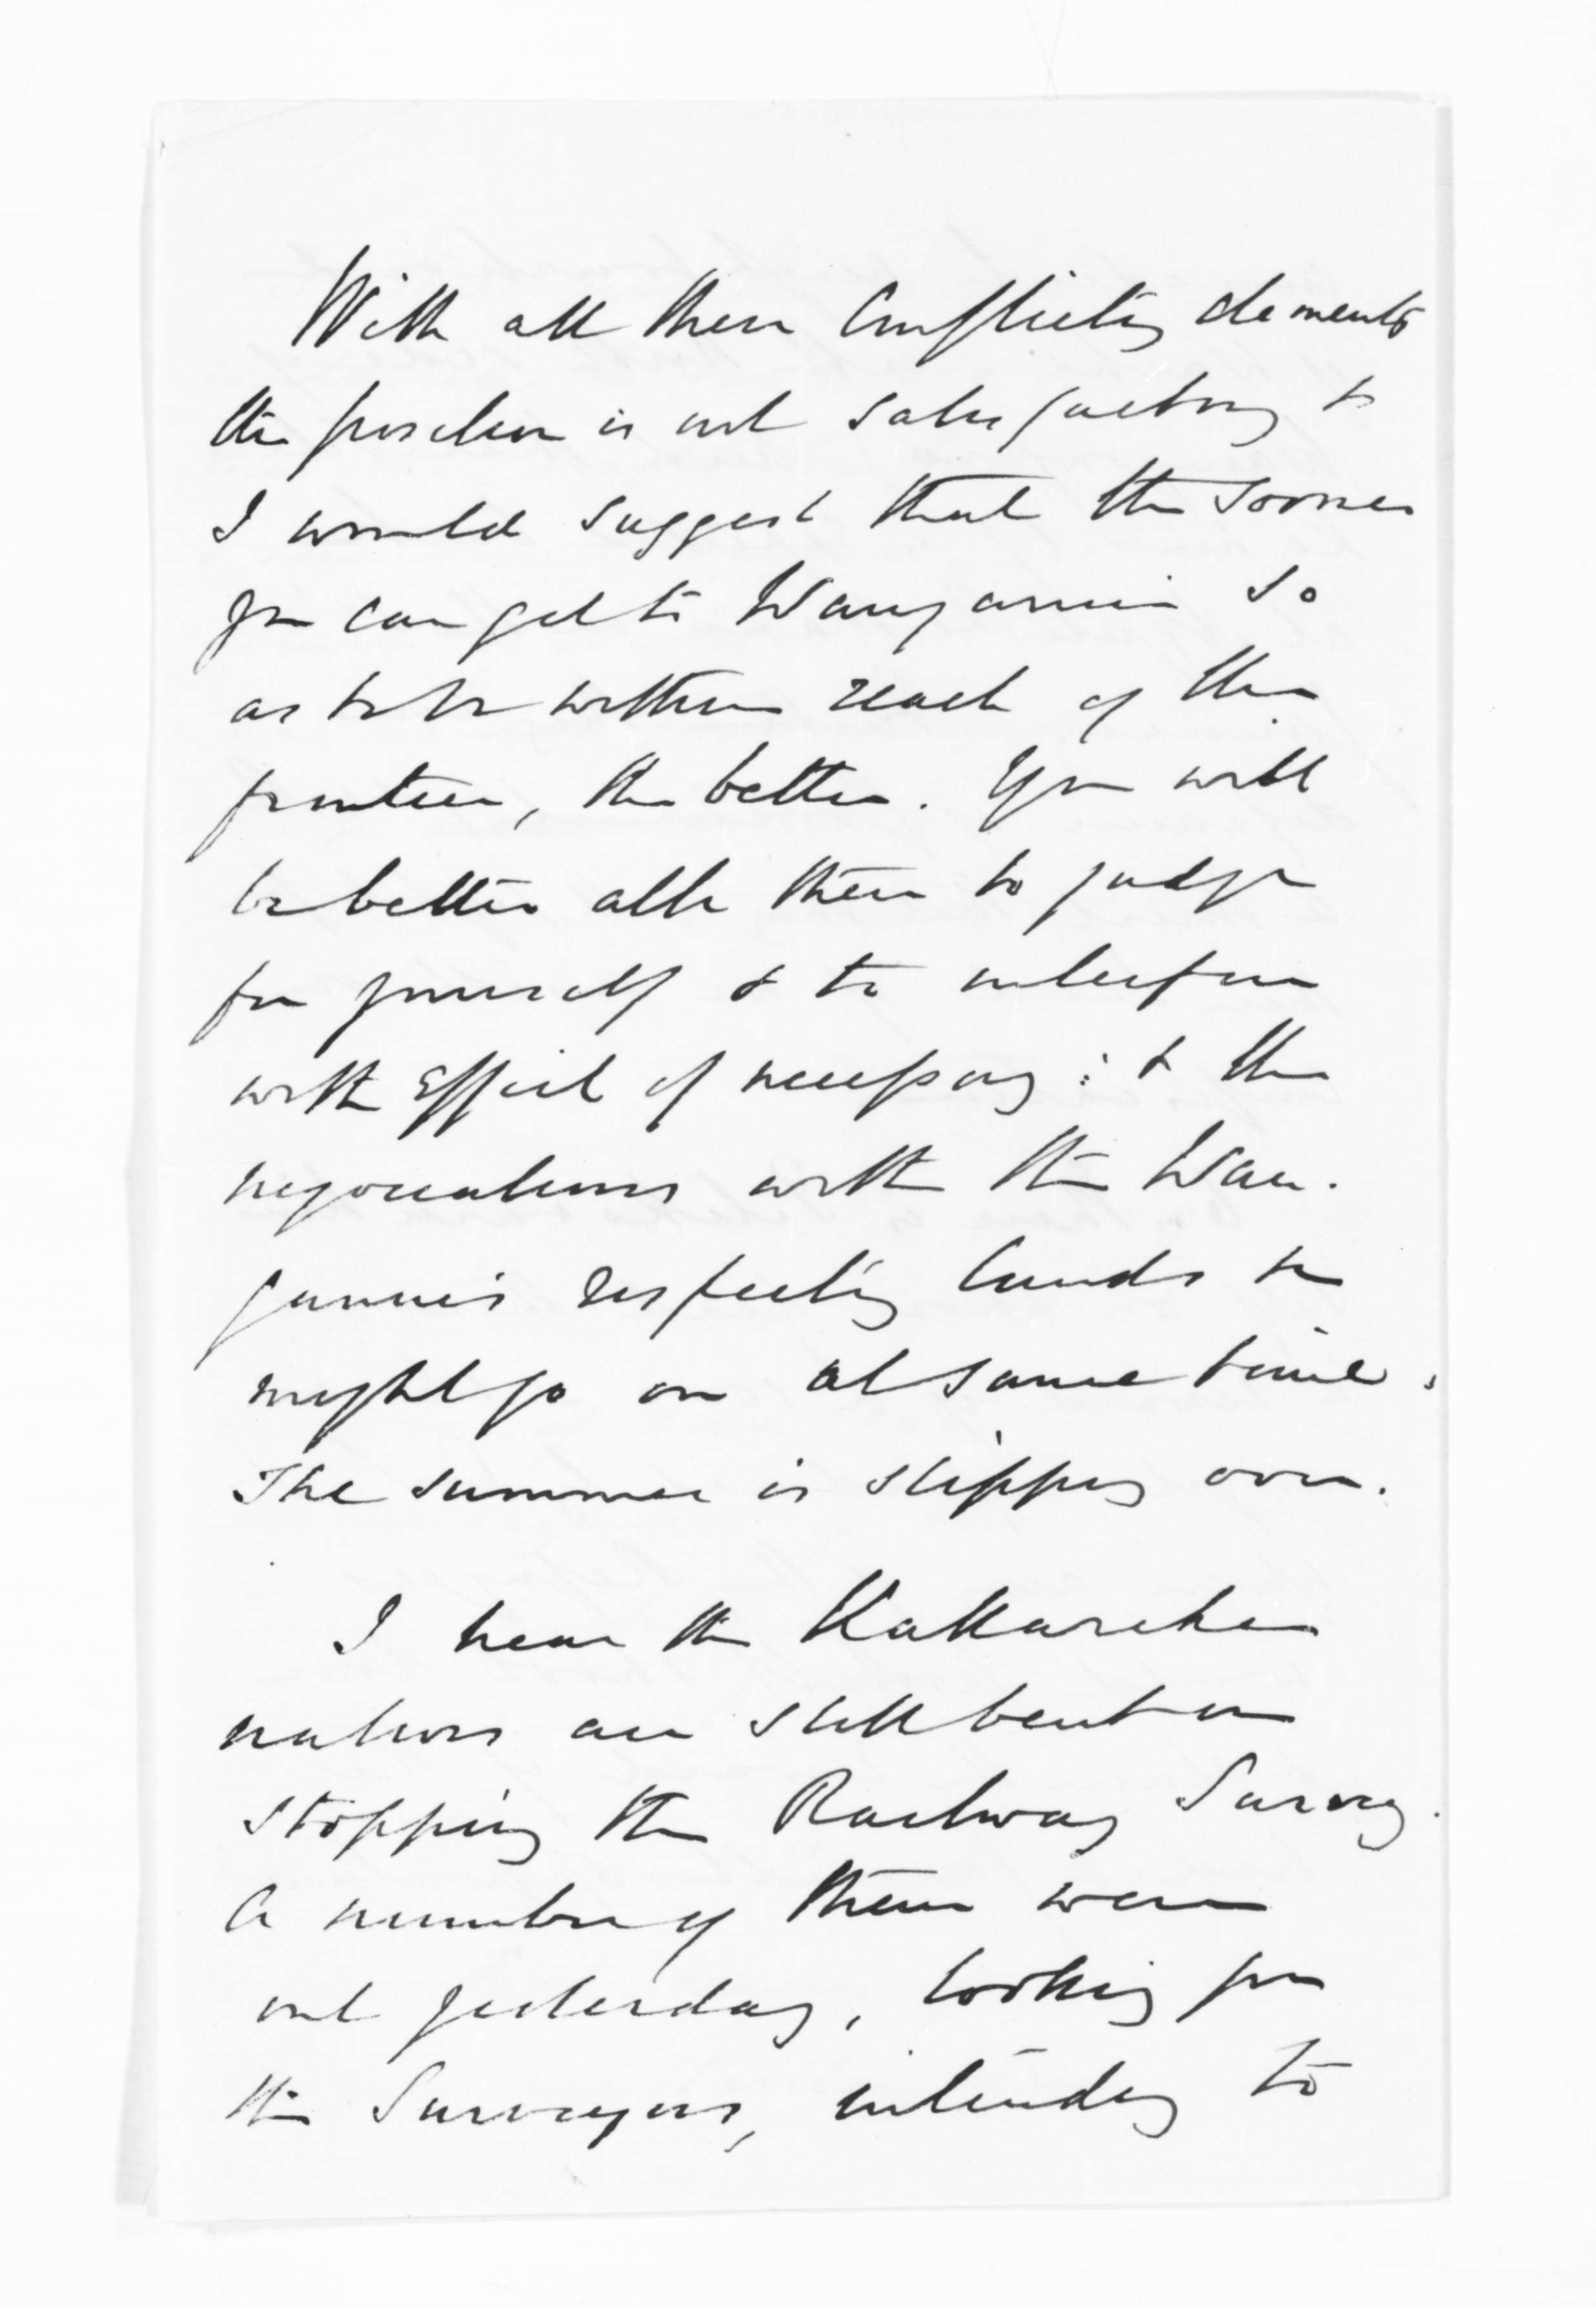 With all these Conflicting elements
the position is not satisfactory &
I would suggest that the sooner
you can get to Wanganui so
as to be within reach of the
frontier, the better. You will
be better able then to judge
for yourself & to interfere
with effect if necessary: & the
negociations with the Wan-
ganuis respecting lands &c
might go on at same time.
The summer is slipping over.
I hear the Kakaramea
natives are still bent on
stopping the Railway Survey.
A number of them were
out yesterday, looking for
the Surveyors, intending to